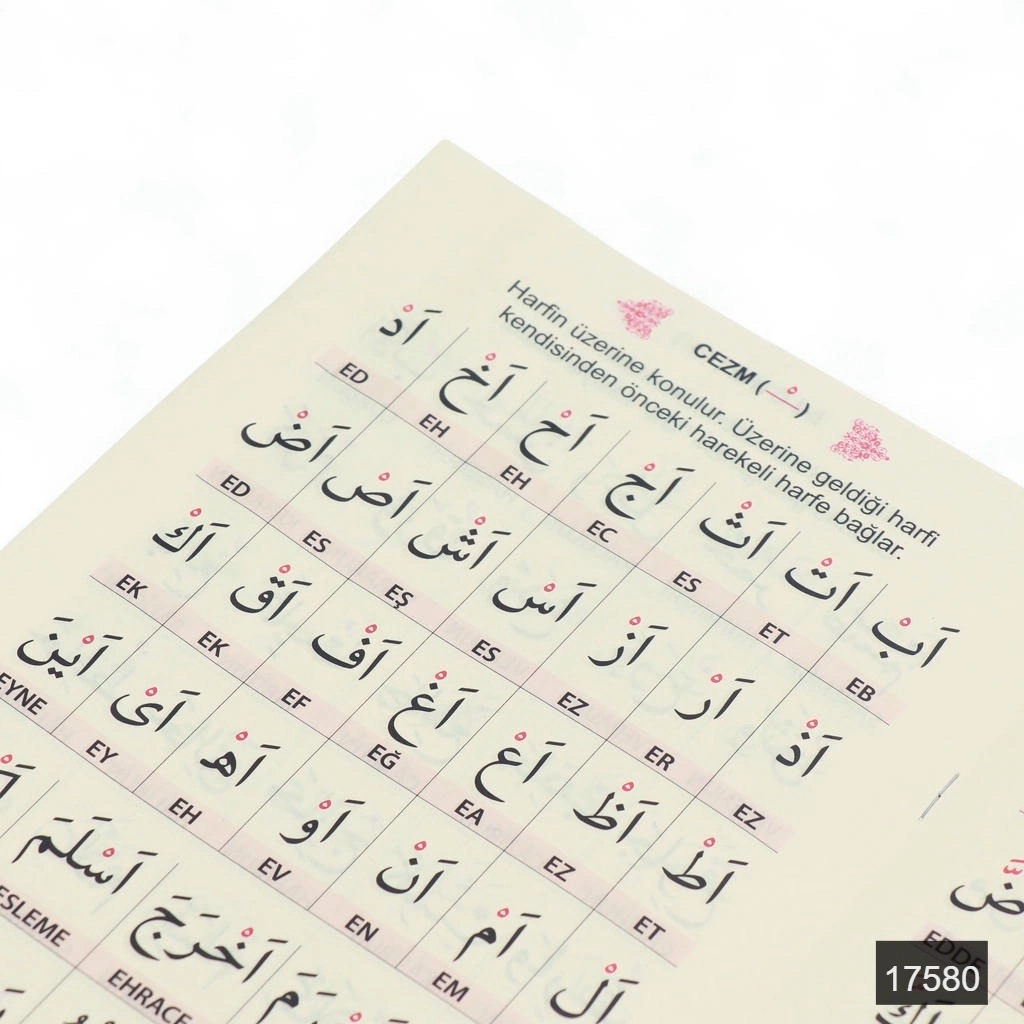 CEZM (ـْـ)
Harfin üzerine konulur. Üzerine geldiği harfi
kendisinden önceki harekeli harfe bağlar.
اَبْ اَتْ اَثْ اَجْ اَحْ اَخْ اَدْ
EB ET ES EC EH EH ED
اَذْ اَرْ اَزْ اَسْ اَشْ اَصْ اَضْ
EZ ER EZ ES EŞ ES ED
اَطْ اَظْ اَعْ اَغْ اَفْ اَقْ اَكْ
ET EZ EA EĞ EF EK EK
اَلْ اَمْ اَنْ اَوْ اَهْ اَىْ اَيْنَ
EM EN EV EH EY EYNE
اَخْرَجَ اَسْلَمَ
EHRACE ESLEME
EDDE
17580